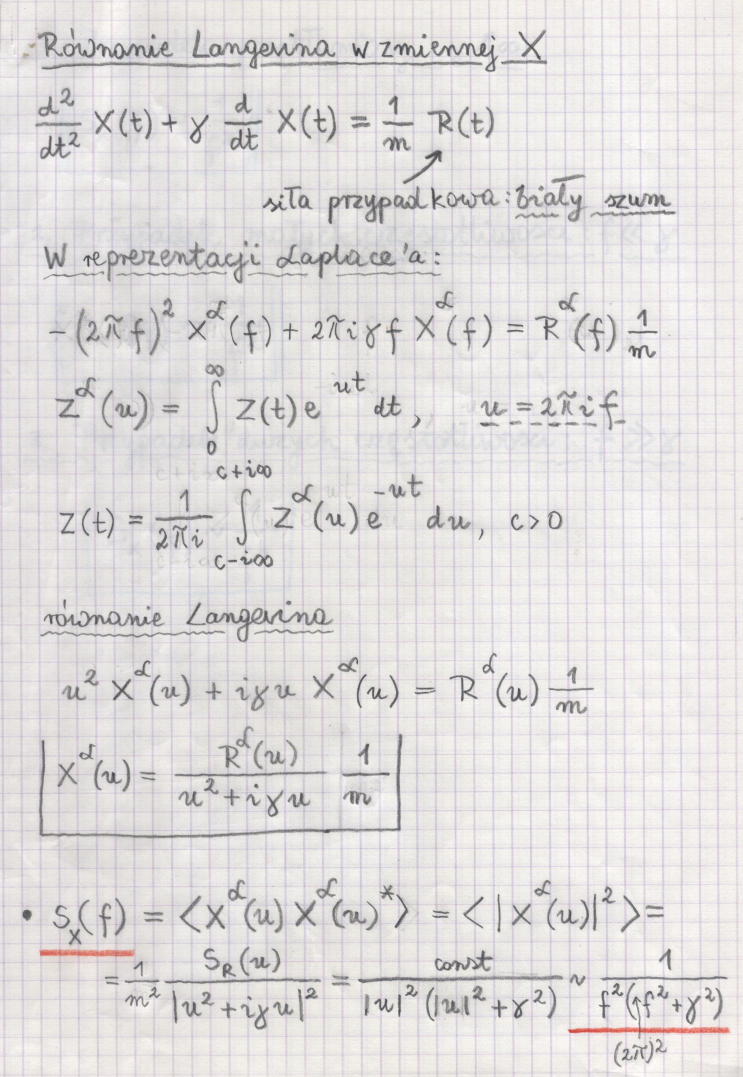 Równanie Langevina w zmiennej X
d²/dt² X(t) + γ d/dt X(t) = 1/m R(t)
siła przypadkowa: biały szum
W reprezentacji Laplace'a:
-(2πf)² X^ℒ(f) + 2πiγf X^ℒ(f) = R^ℒ(f) 1/m
Z^ℒ(u) = ∫₀^∞ Z(t) e^{ut} dt, u = 2πif
Z(t) = 1/2πi ∫_{c-i∞}^{c+i∞} Z^ℒ(u) e^{-ut} du, c>0
równanie Langevina
u² X^ℒ(u) + iγu X^ℒ(u) = R^ℒ(u) 1/m
X^ℒ(u) = R^ℒ(u)/(u² + iγu) 1/m
• S_X(f) = ⟨X^ℒ(u) X^ℒ(u)*⟩ = ⟨|X^ℒ(u)|²⟩ =
= 1/m² S_R(u)/|u² + iγu|² = const/(|u|² (|u|² + γ²)) ~ 1/(f²(f² + γ²))
(2π)²